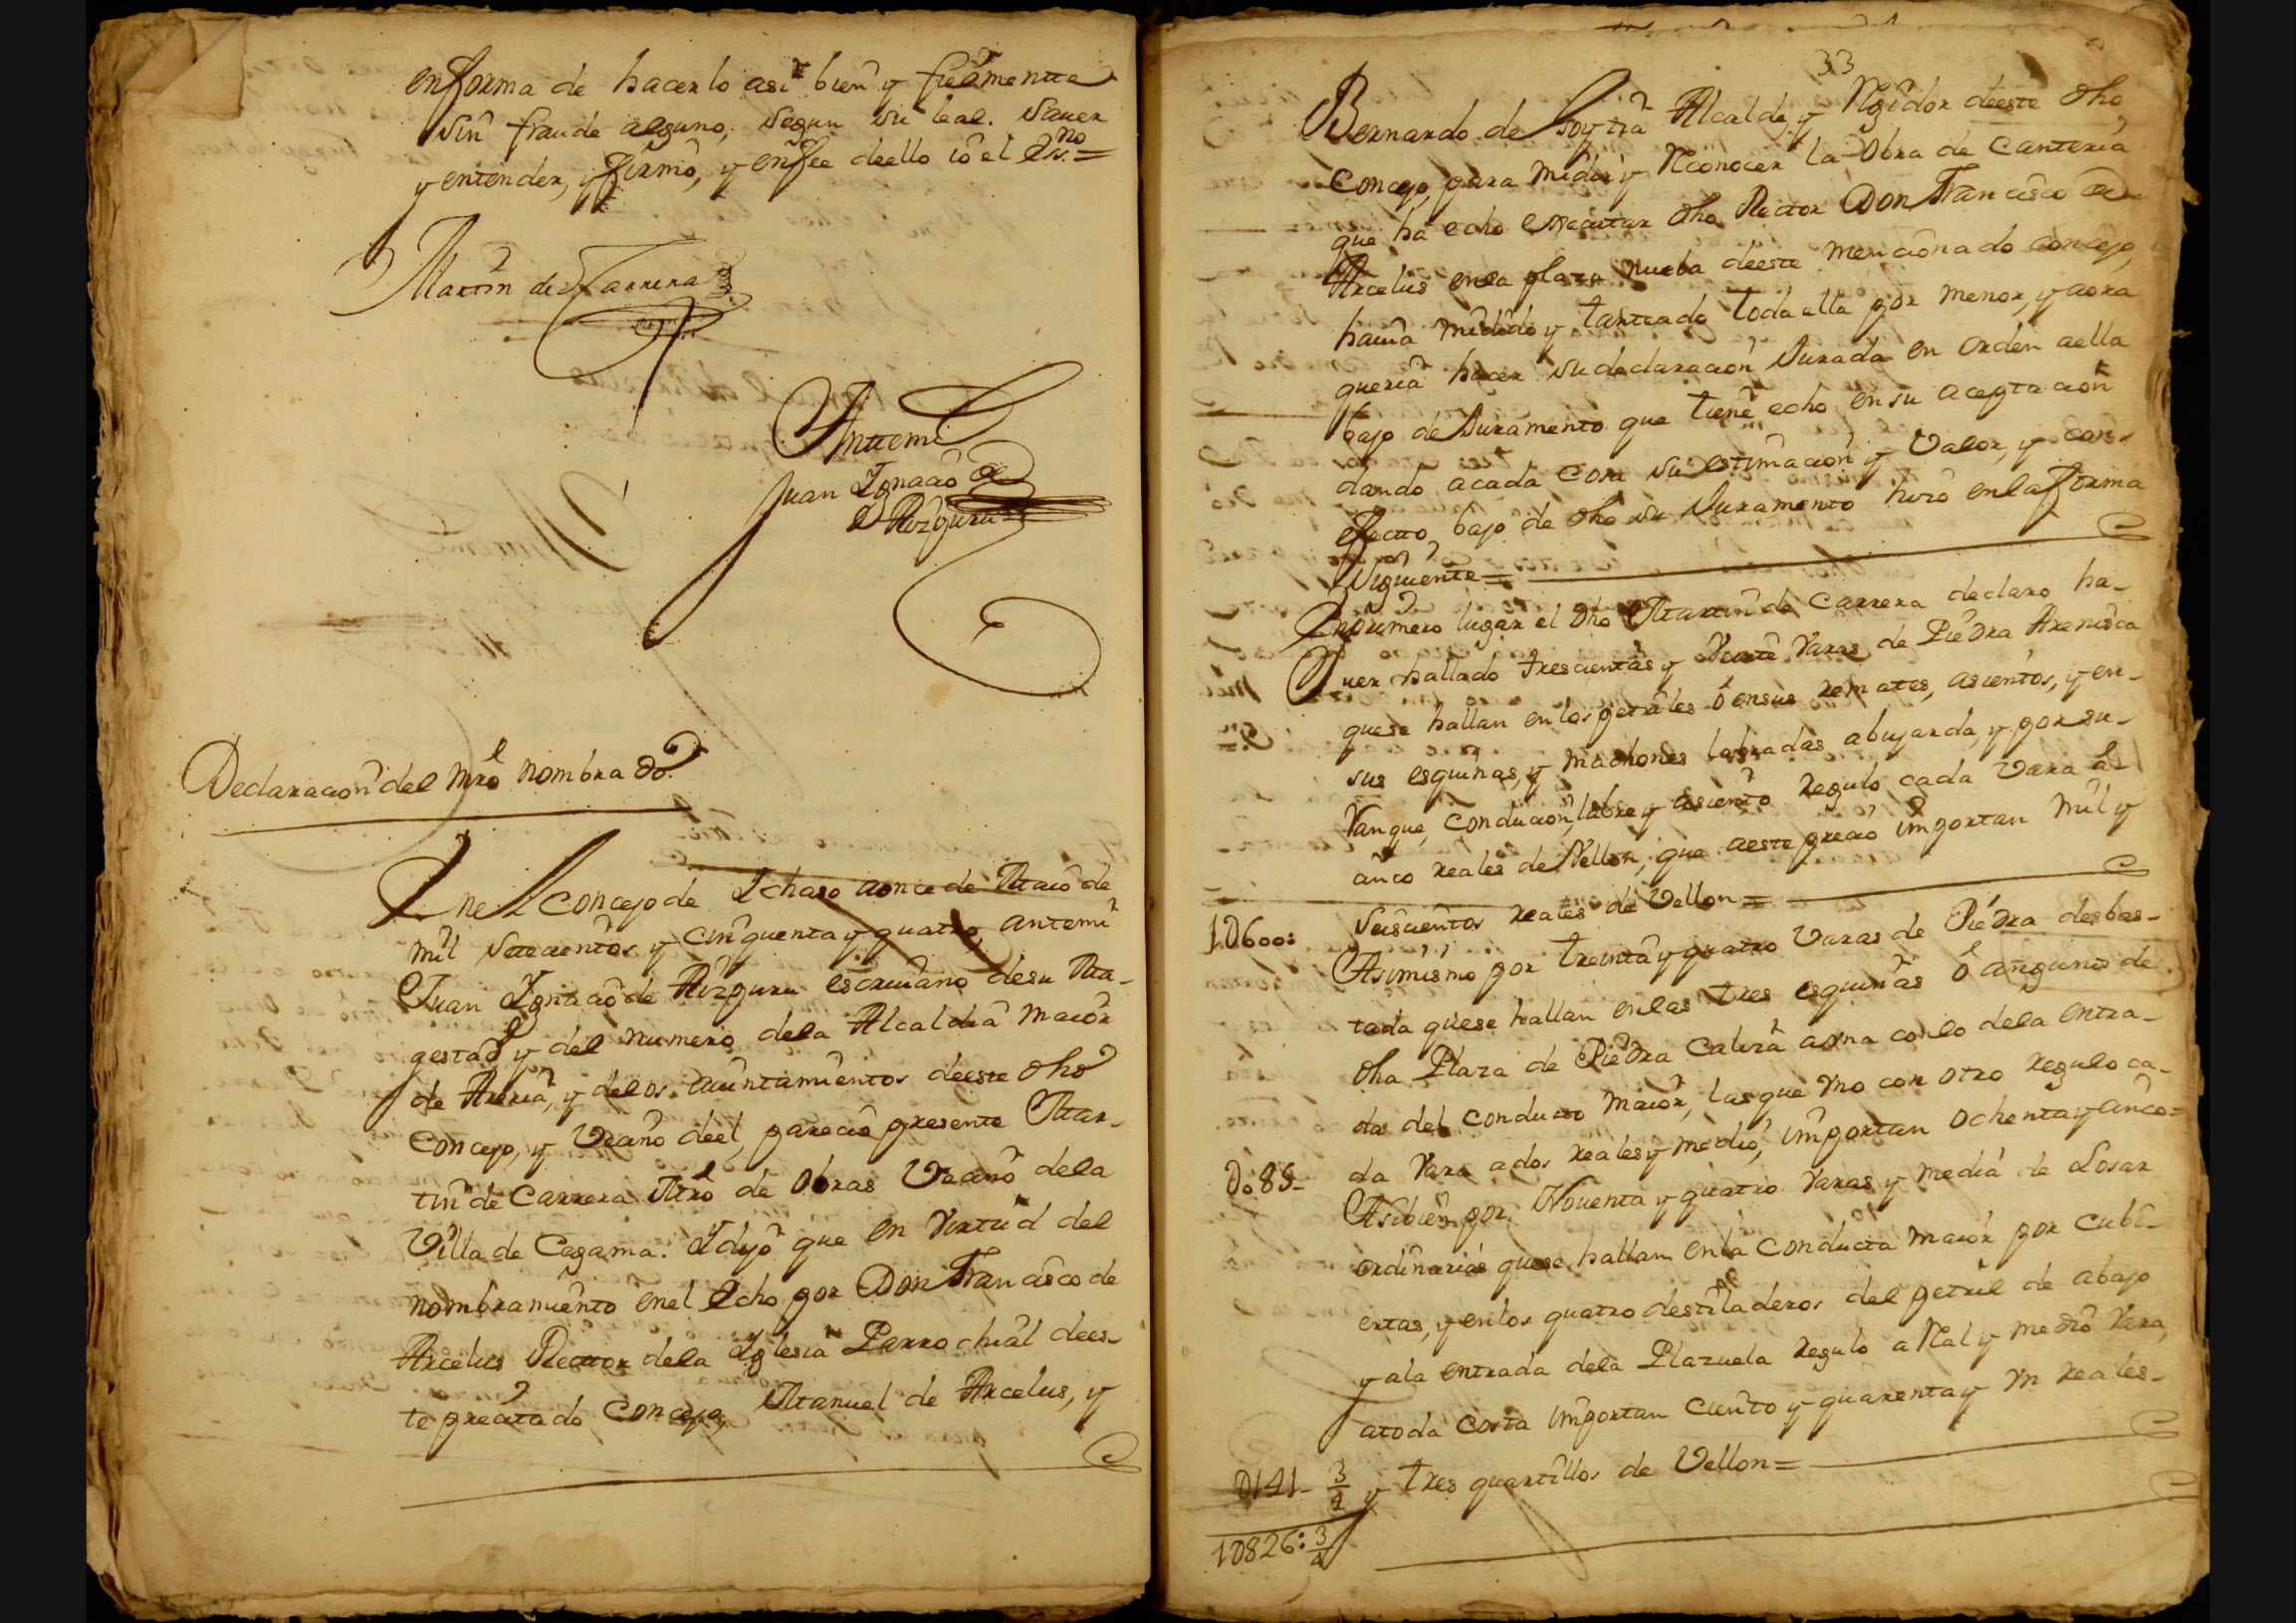 en forma de hacerlo asi bien y fielmentte
sin fraude alguno, segun su leal. Sauer
y entender, y firmó, y en fee de ello io el Ssno=
Martin de Carrera
Anttemi
Juan Ignacio de
Aizpuru
Declaracion del Mro nombrado
En el Concejo de Ichaso a once de Maio de
mil setecientos y cinquenta y quatro, antemi
Juan Ignacio de Aizpuru escriuano de su Ma-
gestad y del numero de la Alcaldia maior
de Areria, y de los aiuntamientos de este dho
Concejo, y Vecino de el, parecio presente Mar-
tin de Carrera Mro de obras Vecino de la
Villa de Cegama. I dijo que en Virtud del
nombramiento en el echo por Don Francisco de
Arcelus Rector de la Iglesia Parrochial de es-
te precitado Concejo, Manuel de Arcelus, y
33
Bernardo de Alcalde, y Regidor de este dho
Concejo, para medir y Reconocer la obra de Canteria
que ha echo executar dho Rector Don Francisco de
Arcelus en la plaza nueba de este mencionado concejo,
hauia medido y tanteado toda ella por menor, y aora
queria hacer su declaracion Jurada en orden a ella
bajo de Juramento que tiene echo en su aceptacion
dando a cada cosa su estimacion y Valor, y con
efecto, bajo de dho su Juramento hizo en la forma
Siguiente=
En primero lugar el dho Martin de Carrera declaro ha-
uer hallado trescientas y Veinte Varas de Piedra Arenisca
que se hallan en los petriles ó en sus remates, asientos, y en-
sus esquinas, y machones labradas abujarda, y por su-
Yanque, conducion, labre y asiento regulo cada vara á-
cinco reales de Vellon, que a este precio importan mil y
1D600: Seiscientos reales de Vellon=
Asimismo por treinta y quatro Varas de Piedra desbas-
tada que se hallan en las tres esquinas ó de
dha Plaza de Piedra Caliza con lo de la entra-
da del conducto maior, las que Vno con otro regulo ca-
D.85- da Vara a dos reales y medio, importan ochenta y cinco=
Asibien por Nouenta y quatro Varas y media de Losas
ordinarias que se hallan en la conducta maior por cubi-
ertas, y en los quatro destiladeros del petril de abajo
y a la entrada de la Plazuela regulo a Real y medio Vara,
a toda costa importan Ciento y quarenta y Vn reales-
D141- 3/4 y tres quartillos de Vellon=
1D826: 3/4